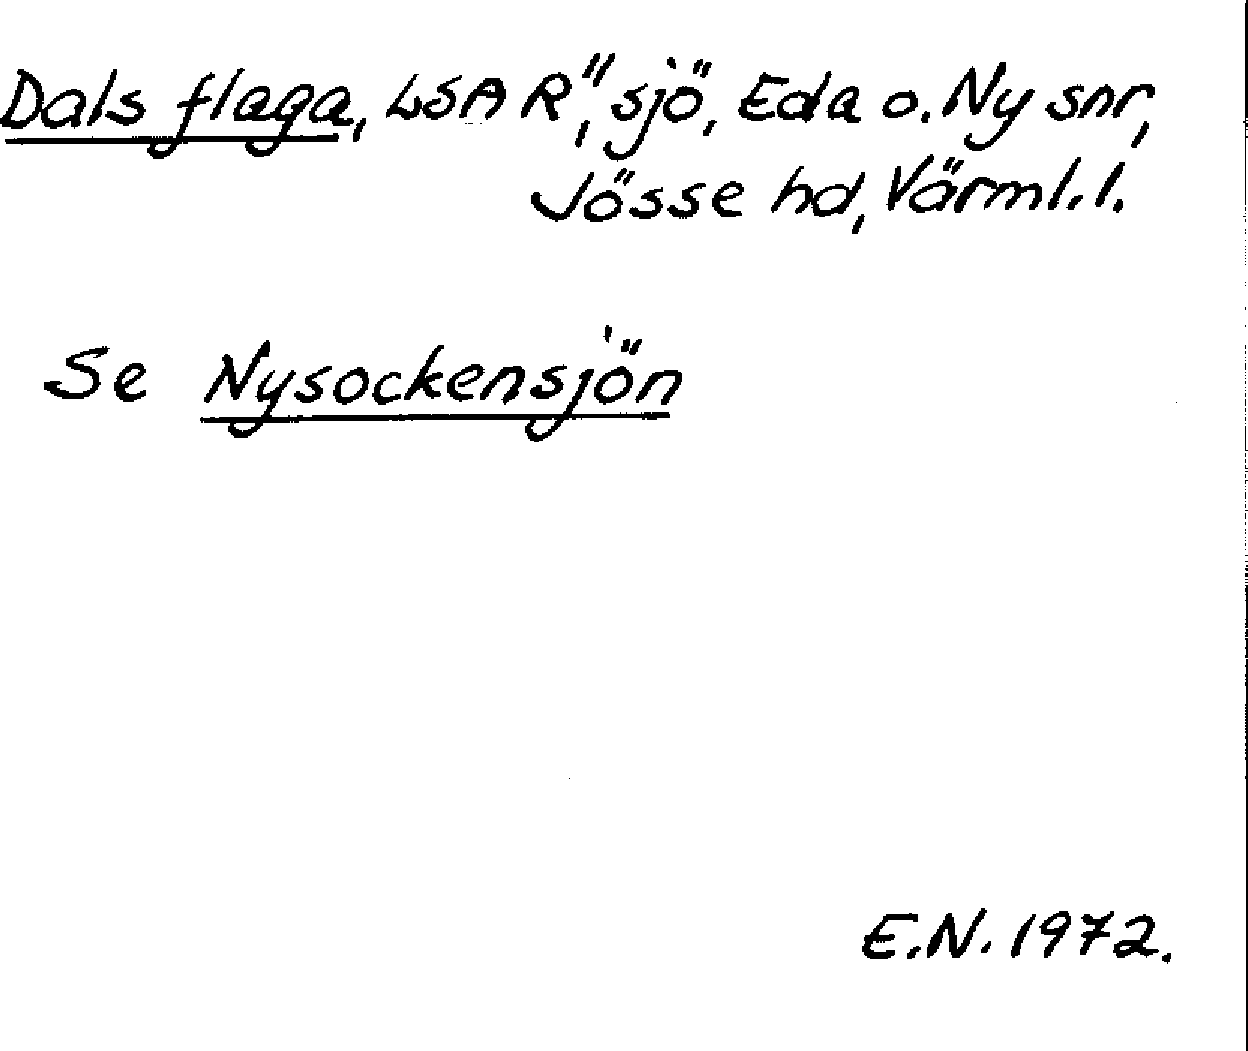 Dals flaga, LSA R", sjö, Eda o. Ny snr,
Jösse hd, Värml. l.
Se Nysockensjön
E.N. 1972.